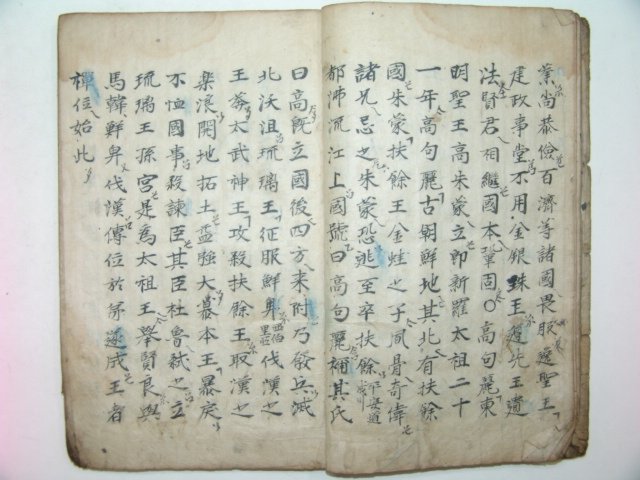 業尚恭儉百濟等諸國畏服遵聖王
建政事堂不用金銀珠王遵先王遺
法賢君相繼國本鞏固○高句麗東
明聖王高朱蒙立卽新羅太祖二十
一年高句麗古朝鮮地其北有扶餘
國朱蒙扶餘王金蛙之子風骨奇偉
諸兄忌之朱蒙恐逃至卒扶餘
都沸流江上國號曰高句麗稱其氏
曰高旣立國後四方來附乃發兵滅
北沃沮琉璃王征服鮮卑西伯伐漢之
王莽太武神王攻殺扶餘王取漢之
樂浪開地拓土益强大慕本王暴戾
不恤國事殺諫臣其臣杜魯弑之立
琉璃王孫宮是爲太祖王擧賢良與
馬韓鮮卑伐漢傳位於弟遂成王者
禪位始此